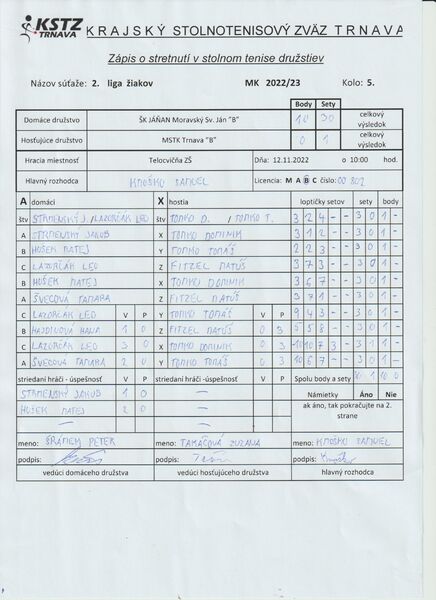 KSTZ
TRNAVA
KRAJSKÝ STOLNOTENISOVÝ ZVÄZ TRNAVA
Zápis o stretnutí v stolnom tenise družstiev
Názov súťaže: 2. liga žiakov MK 2022/23 Kolo: 5.
Body Sety
Domáce družstvo ŠK JÁŇAN Moravský Sv. Ján "B" 10 30 celkový výsledok
Hosťujúce družstvo MSTK Trnava "B" 0 1 celkový výsledok
Hracia miestnosť Telocvičňa ZŠ Dňa: 12.11.2022 o 10:00 hod.
Hlavný rozhodca KMOŠKO SAMUEL Licencia: M A B C číslo: 00802
A domáci X hostia loptičky setov sety body
štv STRMENSKÝ J./LAZORČÁK LEO štv TOMKO D. /TOMKO T. 3 2 4 - - 3 0 1 -
A STRMENSKÝ JAKUB X TOMKO DOMINIK 3 1 2 - - 3 0 1 -
B HUŠEK MATEJ Y TOMKO TOMÁŠ 2 2 3 - - 3 0 1 -
C LAZORČÁK LEO Z FITZEL MATÚŠ 3 7 3 - - 3 0 1 -
B HUŠEK MATEJ X TOMKO DOMINIK 3 6 7 - - 3 0 1 -
A ŠVECOVÁ TAMARA Z FITZEL MATÚŠ 3 7 1 - - 3 0 1 -
C LAZORČÁK LEO V P Y TOMKO TOMÁŠ V P 9 4 3 - - 3 0 1 -
B HAJDINOVÁ HANA 1 0 Z FITZEL MATÚŠ 0 3 5 5 8 - - 3 0 1 -
C LAZORČÁK LEO 3 0 X TOMKO DOMINIK 0 3 -10 10 7 3 - 3 1 1 -
A ŠVECOVÁ TAMARA 2 0 Y TOMKO TOMÁŠ 0 3 10 6 7 - - 3 0 1 -
striedaní hráči - úspešnosť V P striedaní hráči - úspešnosť V P Spolu body a sety 30 1 10 0
STRMENSKÝ JAKUB 1 0 — Námietky Áno Nie
HUŠEK MATEJ 2 0 — ak áno, tak pokračujte na 2. strane
— —
meno: ŠRÁMEK PETER meno: TAKÁČOVÁ ZUZANA meno: KMOŠKO SAMUEL
podpis: podpis: podpis:
vedúci domáceho družstva vedúci hosťujúceho družstva hlavný rozhodca